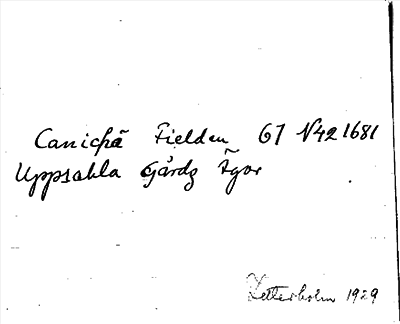 Canichã Fielden 61 N42 1681
Uppsahla Gårdz Ãgor
Zetterholm 1929